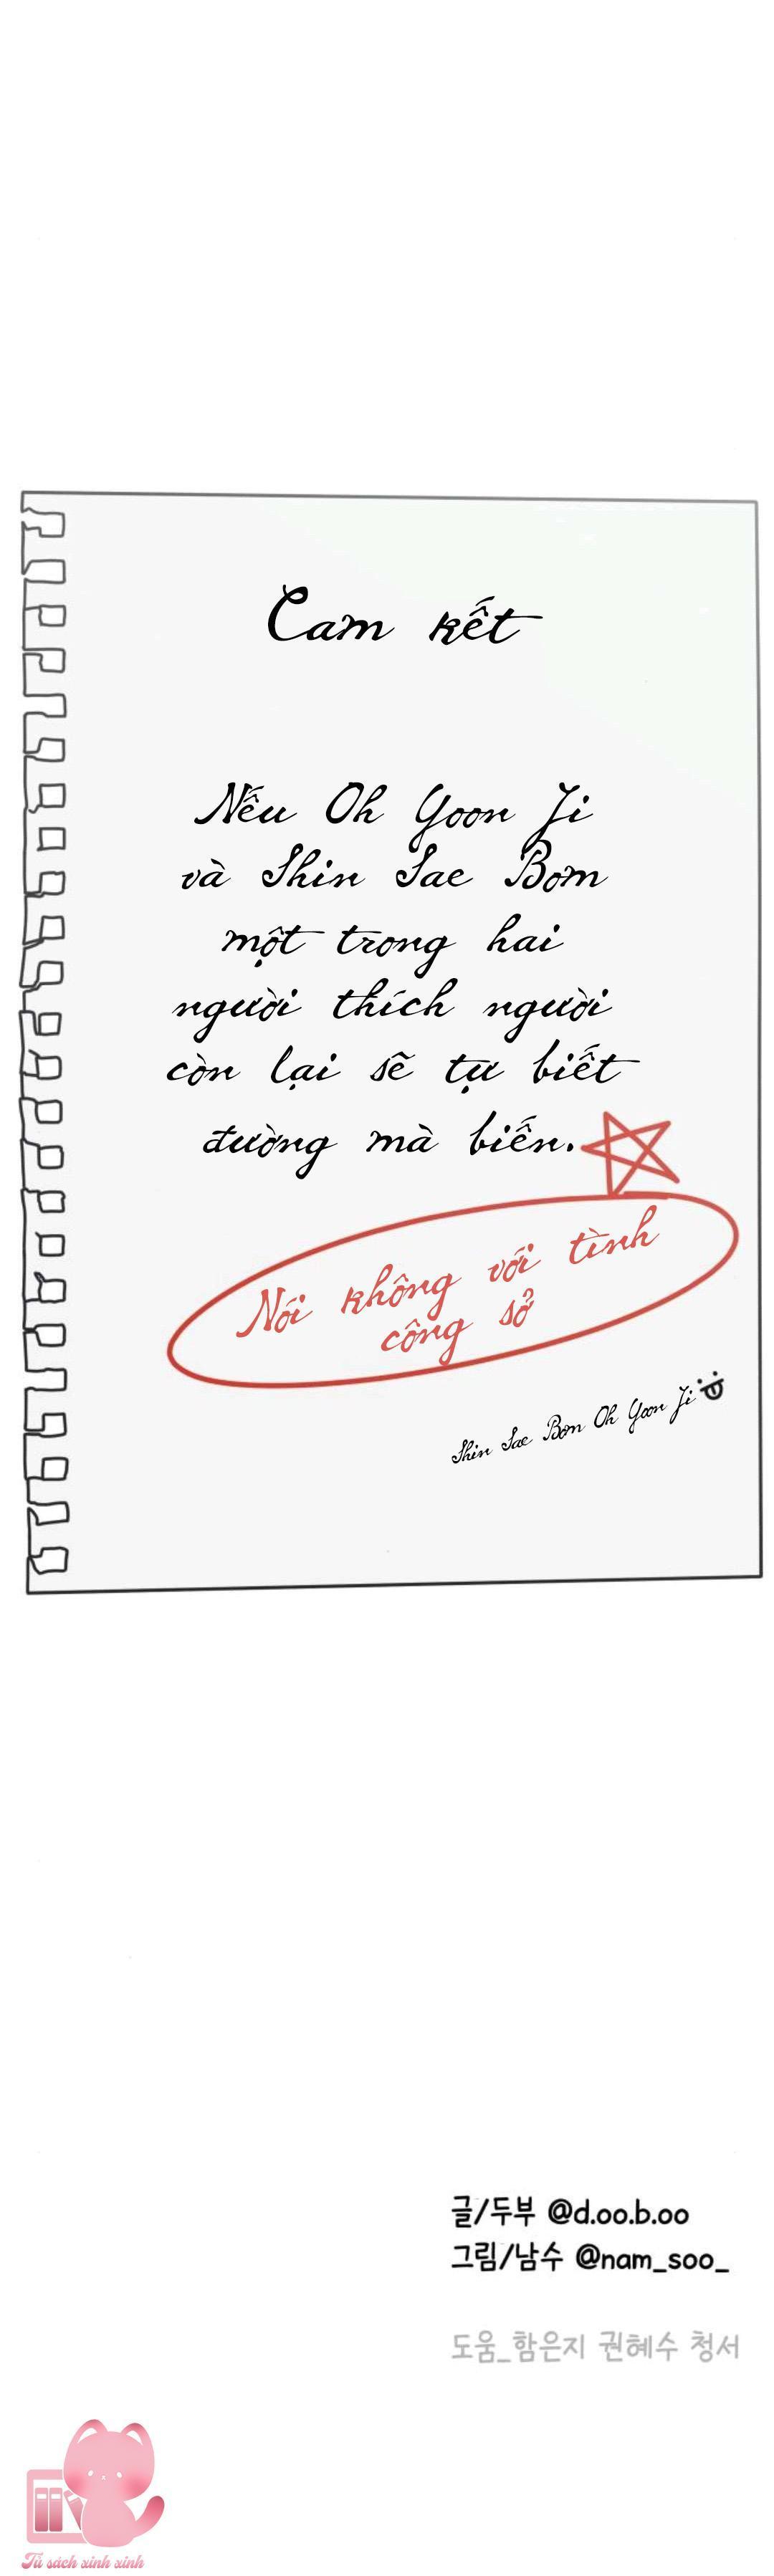 Cam kết
Nếu Oh Yoon Ji
và Shin Sae Bom
một trong hai
người thích người
còn lại sẽ tự biết
đường mà biến.
Nói không với tình
công sở
Shin Sae Bom Oh Yoon Ji
글/두부 @d.oo.b.oo
그림/남수 @nam_soo_
도움_함은지 권혜수 청서
Tủ sách xinh xinh